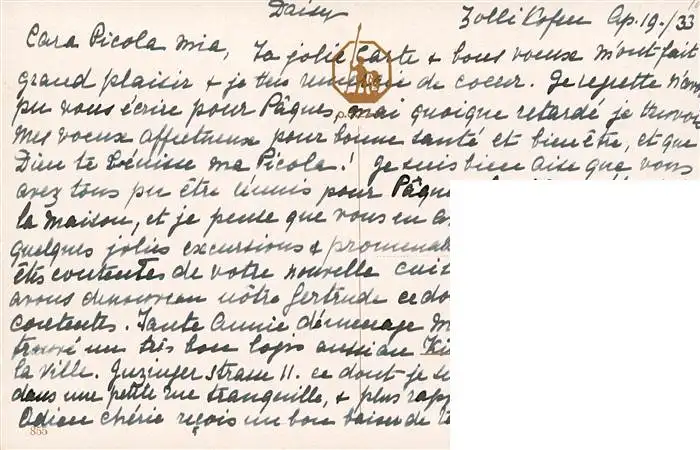 Daisy Zollikofen Ap. 19./33
Cara Picola mia, Ta jolie Carte + bons voeux m'ont fait
grand plaisir + je t'en remercie de coeur. Je regrette n'avoir
pu vous écrire pour Pâques, mai quoique retardé je t'envoie
mes voeux affectueux pour bonne santé et bien être, et que
Dieu te bénisse ma Picola! Je suis bien aise que vous
avez tous pu être réunis pour Pâques
la maison, et je pense que vous en
quelques jolies excursions + promenades
êtes contentes de votre nouvelle
avons denouveau nôtre Gertrude ce do
contentes. Tante Annie démenage
trouvé un très bon logis aussi au
la ville. strasse 11. ce dont je
dans une petite rue tranquille, + plus
Adieu chérie reçois un bon baiser de
855